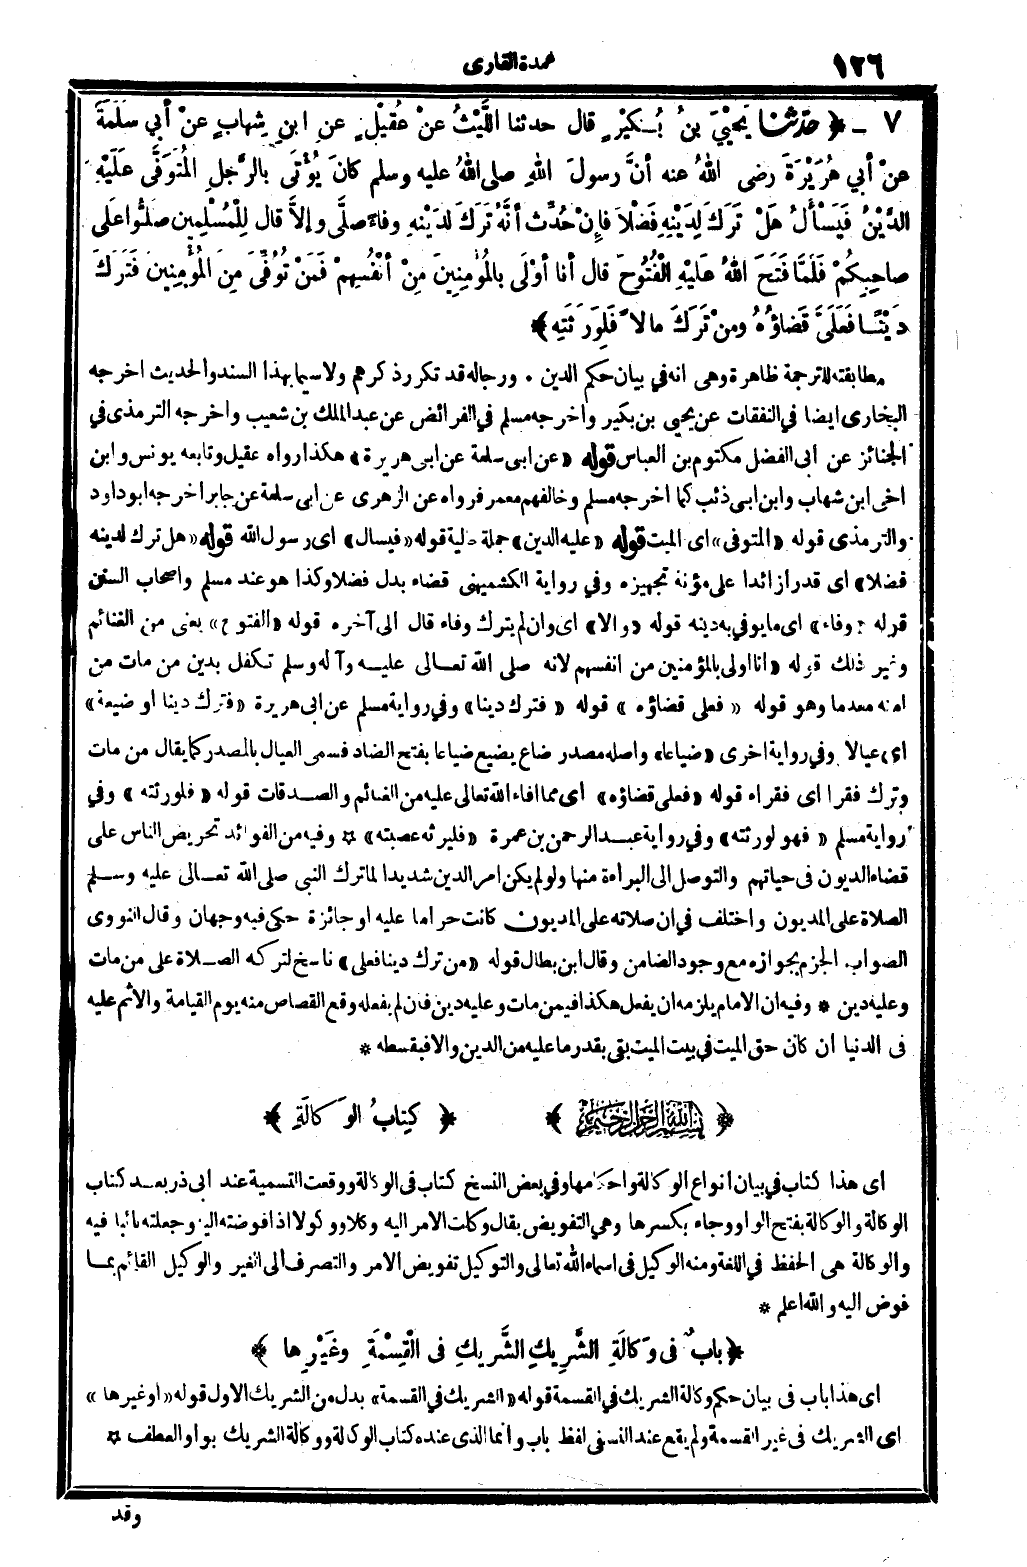 ١٢٦
عمدة القارى
٧ - ﴿ حَدَّثَنَا يَحْيَىَ بنُ بُكَيْرٍ قال حدثنا اللَّيْثُ عنْ عُقَيْلٍ عنِ ابنِ شِهابٍ عنْ أبي سلَمَةَ
عنْ أبي هُرَيْرَةَ رضى اللهُ عنه أنَّ رسولَ اللهِ صلى اللهُ عليه وسلم كانَ يُؤْتَى بالرَّجلِ المُتَوَفَّى علَيْهِ
الدَّيْنُ فَيَسْأَلُ هَلْ تَرَكَ لِدَيْنِهِ فَضْلاً فإِنْ حُدِّثَ أنَّهُ تَرَكَ لدَيْنهِ وفاءً صلَّى وإلاَّ قال لِلْمُسْلِمِينَ صلُّوا على
صاحِبِكُمْ فَلَمَّا فَتَحَ اللهُ علَيْهِ الْفُتُوحَ قال أنا أوْلَى بالمُؤْمِنِينَ مِنْ أنْفُسِهِمْ فَمَنْ تُوُفِّىَ مِنَ المُؤْمِنِينَ فَتَرَكَ
دَيْنًا فَعَلَىَّ قَضاؤُهُ ومنْ تَرَكَ مالاً فَلِوَرَثَتِهِ ﴾
مطابقته للترجمة ظاهرة وهى انه في بيان حكم الدين . ورجاله قد تكرر ذكرهم ولا سيما بهذا السند والحديث اخرجه
البخارى ايضا في النفقات عن يحيى بن بكير واخرجه مسلم في الفرائض عن عبد الملك بن شعيب واخرجه الترمذى في
الجنائز عن ابى الفضل مكتوم بن العباس قوله «عن ابى سلمة عن ابى هريرة» هكذا رواه عقيل وتابعه يونس وابن
اخى ابن شهاب وابن ابى ذئب كما اخرجه مسلم وخالفهم معمر فرواه عن الزهرى عن ابى سلمة عن جابر اخرجه ابو داود
والترمذى قوله «المتوفى» اى الميت قوله «عليه الدين» جملة حالية قوله «فيسال» اى رسول الله قوله «هل ترك لدينه
فضلا» اى قدرا زائدا على مؤنة تجهيزه وفي رواية الكشميهنى قضاء بدل فضلا وكذا هو عند مسلم واصحاب السنن
قوله «وفاء» اى ما يوفي به دينه قوله «والا» اى وان لم يترك وفاء قال الى آخره قوله «الفتوح» يعنى من الغنائم
وغير ذلك قوله «انا اولى بالمؤمنين من انفسهم لانه صلى الله تعالى عليه وآله وسلم تكفل بدين من مات من
امته معدما وهو قوله «فعلى قضاؤه» قوله «فترك دينا» وفي رواية مسلم عن ابى هريرة «فترك دينا او ضيعة»
اى عيالا وفي رواية اخرى «ضياعا» واصله مصدر ضاع يضيع ضياعا بفتح الضاد فسمى العيال بالمصدر كما يقال من مات
وترك فقرا اى فقراء قوله «فعلى قضاؤه» اى مما افاء الله تعالى عليه من الغنائم والصدقات قوله «فلورثته» وفي
رواية مسلم «فهو لورثته» وفي رواية عبد الرحمن بن عمرة «فليرثه عصبته» ✡ وفيه من الفوائد تحريض الناس على
قضاء الديون فى حياتهم والتوصل الى البراءة منها ولو لم يكن امر الدين شديدا لما ترك النبى صلى الله تعالى عليه وسلم
الصلاة على المديون واختلف في ان صلاته على المديون كانت حراما عليه او جائزة حكى فيه وجهان وقال النووى
الصواب الجزم بجوازه مع وجود الضامن وقال ابن بطال قوله «من ترك دينا فعلى» ناسخ لتركه الصلاة على من مات
وعليه دين * وفيه ان الامام يلزمه ان يفعل هكذا فيمن مات وعليه دين فان لم يفعله وقع القصاص منه يوم القيامة والاثم عليه
فى الدنيا ان كان حق الميت في بيت الميت بقى بقدر ما عليه من الدين والا فبقسطه *
﴿ بسم الله الرحمن الرحيم ﴾ ﴿ كِتابُ الوَكالَةِ ﴾
اى هذا كتاب في بيان انواع الوكالة واحكامها وفي بعض النسخ كتاب فى الوكالة ووقعت التسمية عند ابى ذر بعد كتاب
الوكالة والوكالة بفتح الواو وجاء بكسرها وهي التفويض يقال وكلت الامر اليه وكلا ووكولا اذا فوضته اليه وجعلته نائبا فيه
والوكالة هى الحفظ في اللغة ومنه الوكيل فى اسماء الله تعالى والتوكيل تفويض الامر والتصرف الى الغير والوكيل القائم بما
فوض اليه والله اعلم *
﴿ بابٌ فى وكالَةِ الشَّرِيكِ الشَّرِيكَ فى الْقِسْمَةِ وغَيْرِها ﴾
اى هذا باب فى بيان حكم وكالة الشريك في القسمة قوله «الشريك في القسمة» بدل من الشريك الاول قوله «او غيرها»
اى الشريك فى غير القسمة ولم يقع عند النسفى لفظ باب وانما الذى عنده كتاب الوكالة ووكالة الشريك بواو العطف ✡
وقد